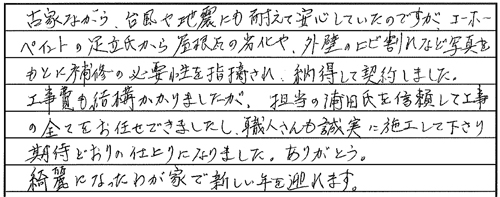 古家ながら、台風や地震にも耐えて安心していたのですが、ユーホー
ペイントの足立氏から屋根点の劣化や、外壁のヒビ割れなど写真を
もとに補修の必要性を指摘され、納得して契約しました。
工事費も結構かかりましたが、担当の浦田氏を信頼して工事
の全てをお任せできましたし、職人さんも誠実に施工して下さり
期待どおりの仕上りになりました。ありがとう。
綺麗になったわが家で新しい年を迎れます。